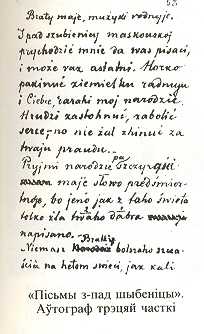 Braty maje, mużyki rodnyje.
I z pad szubienicy maskouskoj
prychodzić mnie da was pisaci,
i może raz astatni. Horko
pakinuć ziemielku radnuju
i Ciebie, darahi moj narodzie.
Hrudzi zastohnuć, zabolić
serce, – no nie żal zhinuć za
twaju praudu. –
Pryjmi narodzie pa Szczyrości
maje słowo predśmiert-
noje, bo jeno jak z taho świeta
tolko dla twaho dabra
napisano. – Bratki
Niemasz bolszaho szcza-
ścia na hetom świeci, jak kali
«Пісьмы з-пад шыбеніцы».
Аўтограф трэцяй часткі